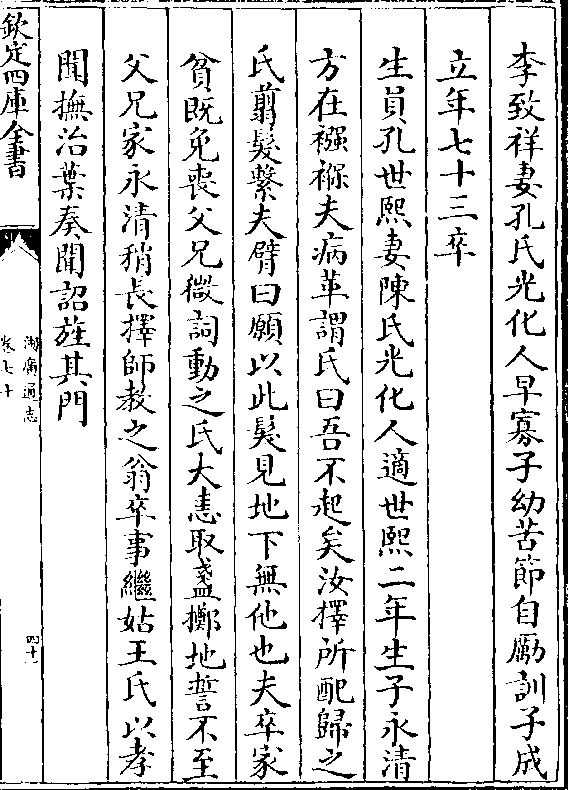 李致祥妻孔氏光化人早寡子幼苦節自勵訓子成
立年七十三卒
生員孔世熙妻陳氏光化人適世熙二年生子永清
方在襁褓夫病革謂氏曰吾不起矣汝擇所配歸之
氏翦髮繫夫臂曰願以此髮見地下無他也夫卒家
貧既免喪父兄微詞動之氏大恚取盞擲地誓不至
父兄家永清稍長擇師教之翁卒事繼姑王氏以孝
聞撫治葉奏聞詔旌其門
欽定四庫全書
湖廣通志
卷七十
四十